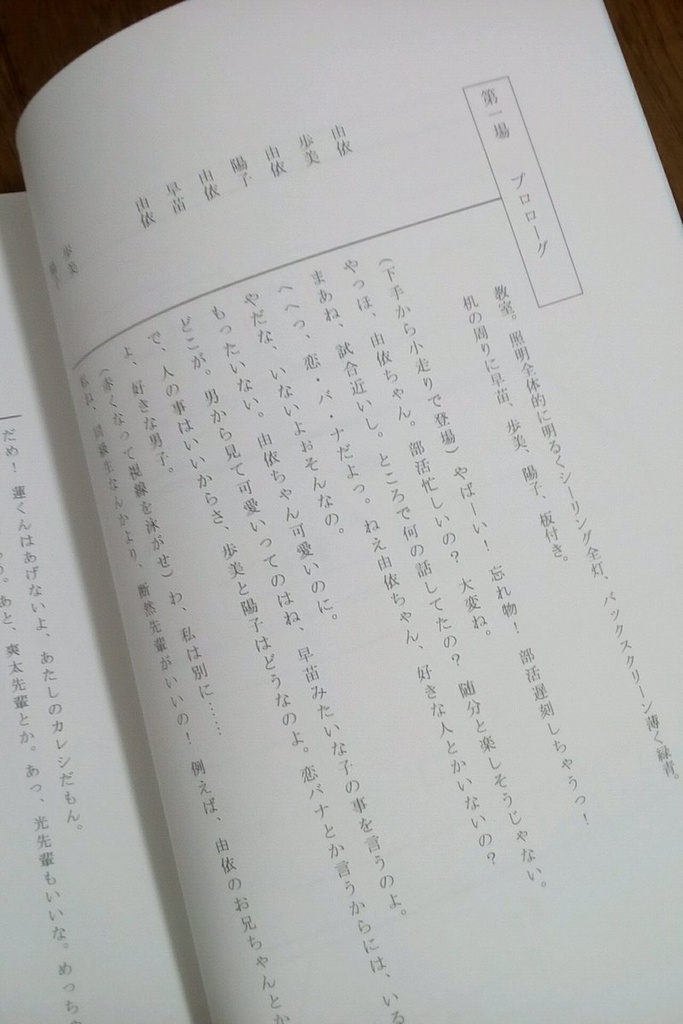 第一場 プロローグ
教室。照明全体的に明るくシーリング全灯、バックスクリーン薄く緑青。
机の周りに早苗、歩美、陽子、板付き。
由依 (下手から小走りで登場)やばーい! 忘れ物! 部活遅刻しちゃうっ!
歩美 やっほ、由依ちゃん。部活忙しいの? 大変ね。
由依 まあね、試合近いし。ところで何の話してたの? 随分と楽しそうじゃない。
陽子 へへっ、恋・バ・ナだよっ。ねえ由依ちゃん、好きな人とかいないの?
由依 やだな、いないよおそんなの。
早苗 もったいない。由依ちゃん可愛いのに。
由依 どこが。男から見て可愛いってのはね、早苗みたいな子の事を言うのよ。
で、人の事はいいからさ、歩美と陽子はどうなのよ。恋バナとか言うからには、いる
よ、好きな男子。
歩美 (赤くなって視線を泳がせ)わ、私は別に……
私ね、同級生なんかより、断然先輩がいいの! 例えば、由依のお兄ちゃんとか
だめ! 蓮くんはあげないよ、あたしのカレシだもん。
あと、爽太先輩とか。あっ、光先輩もいいな。めっちゃ